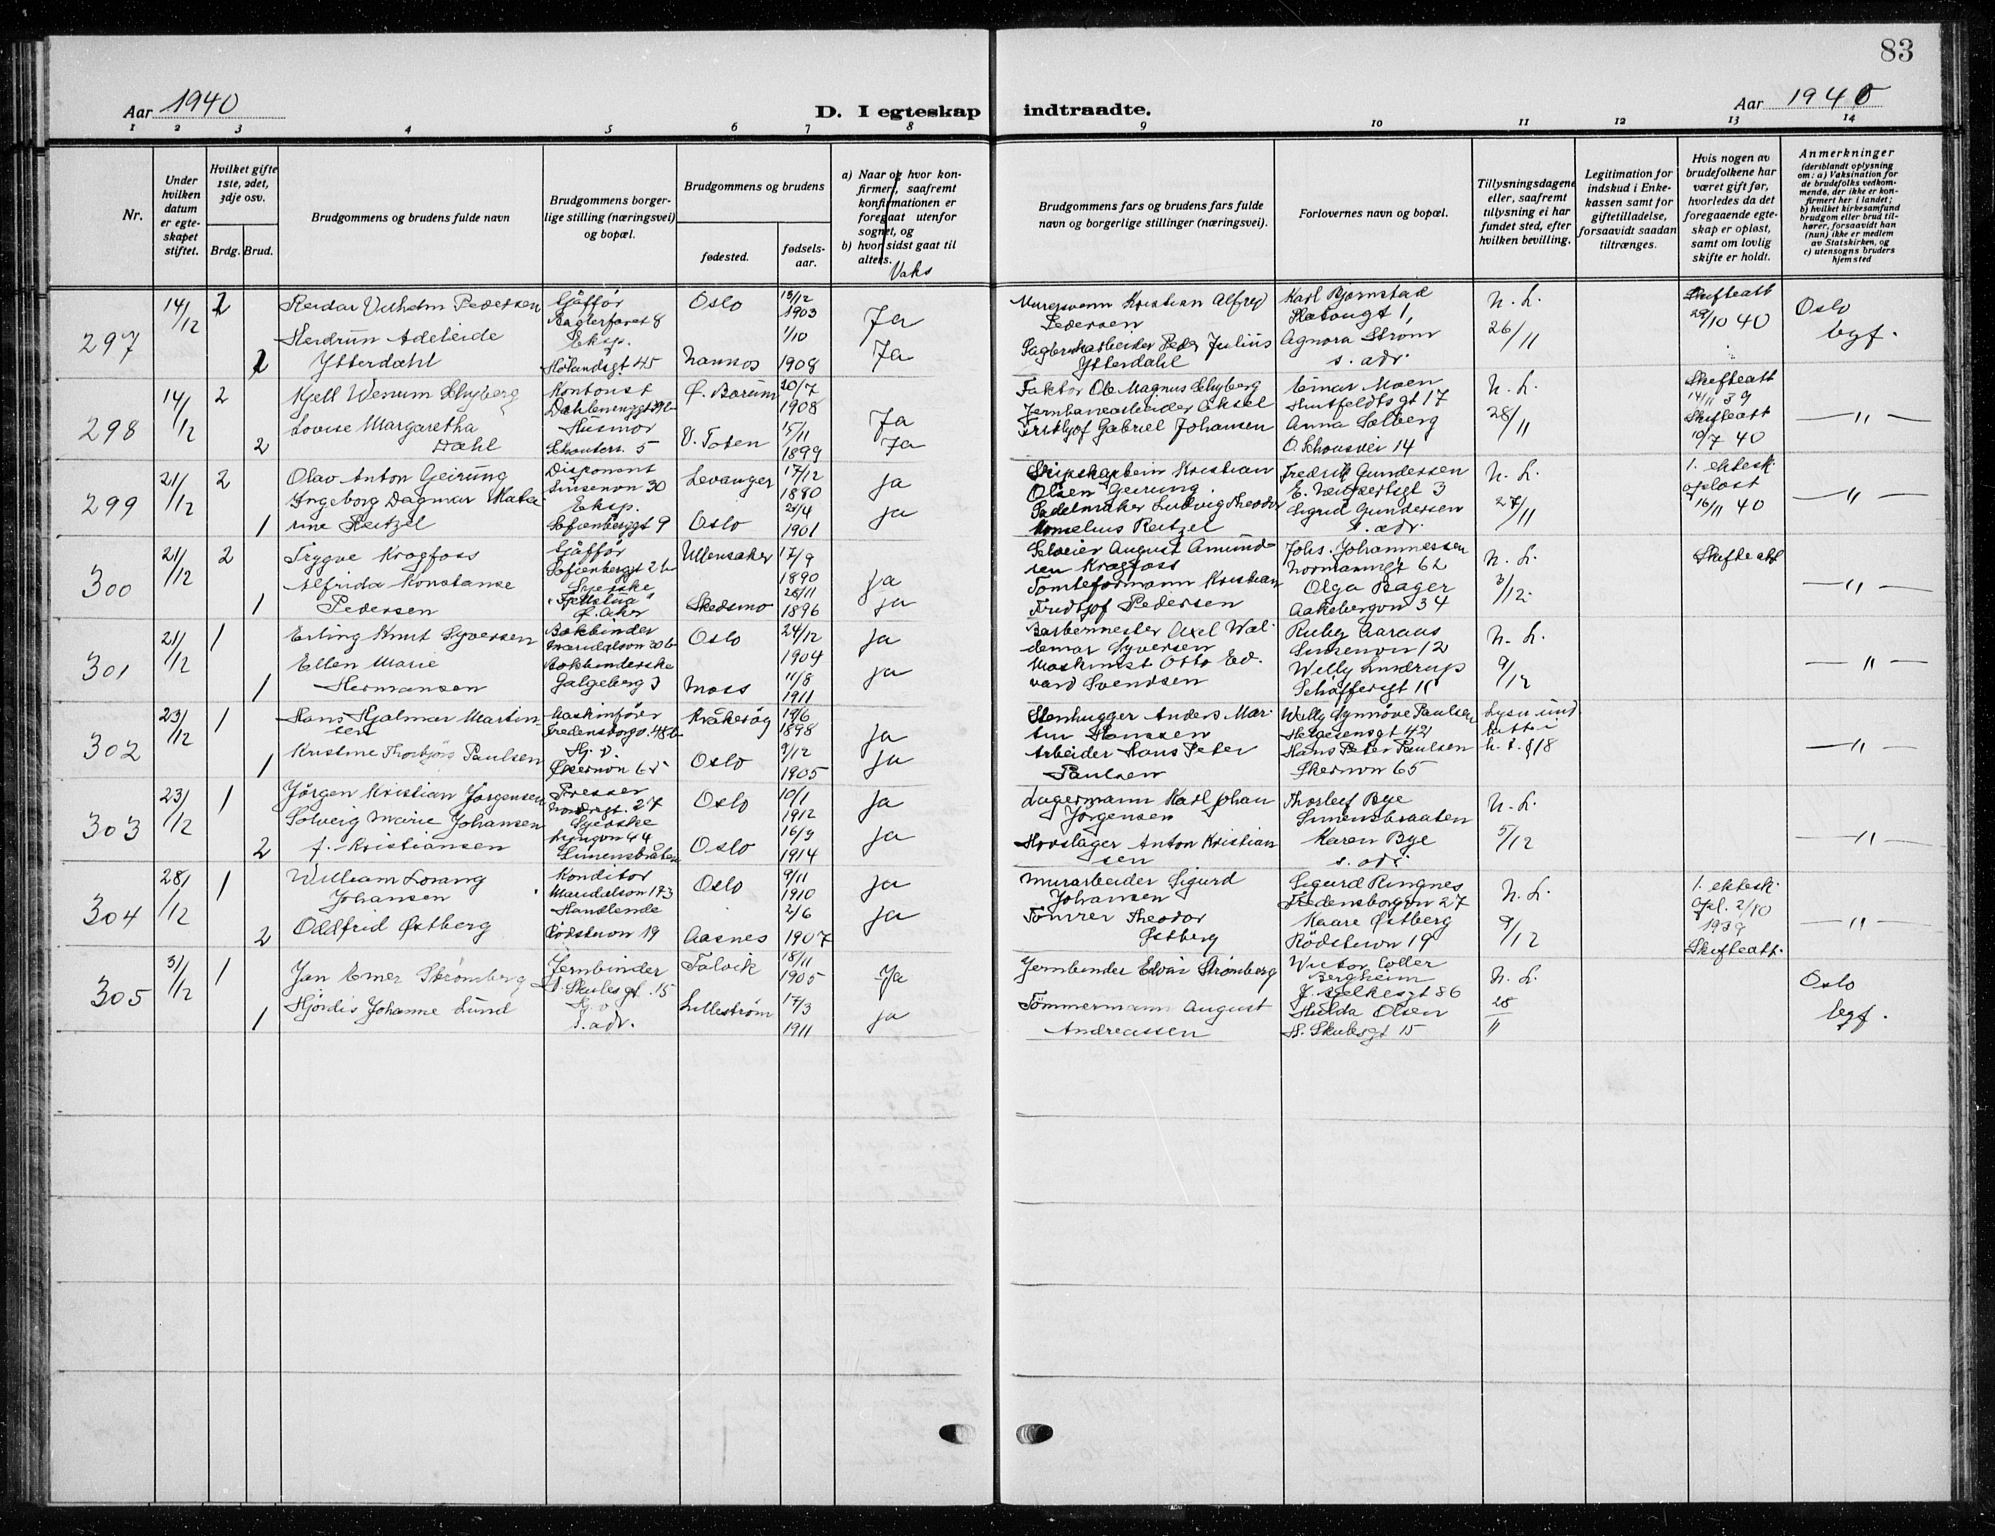 83
Aar 1940
D. I egteskap indtraadte.
Aar 1940
1 2 3 4 5 6 7 8 9 10 11 12 13 14
Nr.
Under hvilken datum er egteskapet stiftet.
Hvilket gifte 1ste, 2det, 3dje osv.
Brdg. Brud.
Brudgommens og brudens fulde navn
Brudgommens borgerlige stilling (næringsvei) og bopæl.
Brudgommens og brudens
fødested.
fødselsaar.
a) Naar og hvor konfirmert, saafremt konfirmationen er foregaat utenfor sognet, og
b) hvor sidst gaat til alters.
Vaks
Brudgommens fars og brudens fars fulde navn og borgerlige stillinger (næringsvei).
Forlovernes navn og bopæl.
Tillysningsdagene eller, saafremt tillysning ei har fundet sted, efter hvilken bevilling.
Legitimation for indskud i Enkekassen samt for giftetilladelse, forsaavidt saadan tiltrænges.
Hvis nogen av brudefolkene har været gift før, hvorledes da det foregaaende egteskap er opløst, samt om lovlig skifte er holdt.
Anmerkninger
(deriblandt oplysning om: a) Vaksination for de brudefolks vedkommende, der ikke er konfirmert her i landet; b) hvilket kirkesamfund brudgom eller brud tilhører, forsaavidt han (hun) ikke er medlem av Statskirken, og c) utensogns bruders hjemsted
297
14/12
2
Reidar Vilhelm Pedersen
Sjåffør
Baglerfaret 8
Oslo
13/12 1903
Ja
Kristian Alfred Pedersen
Karl Bjørnstad
1,
N. L.
26/11
Skifteatt
29/10 40
Oslo
bgf.
1
Heidrun Adeleide Ytterdahl
Eksp.
Hølandsgt 45
Namsos
1/10 1908
Ja
Peder Julius Ytterdahl
Agnora Strøm
s. adr.
298
14/12
2
Kjell Wenum Schyberg
Kontorist
Ø. Bærum
20/7 1908
Ja
Faktor Ole Magnus Schyberg
Einar Moen
Huitfeldtsgt 17
N. L.
28/11
Skifteatt
14/11 39
— " —
2
Lovise Margaretha Dæhl
Husmor
Schouters. 5
V. Toten
15/11 1899
Ja
Jernbanearbeider Aksel Frithjof Gabriel Johansen
Anna Solberg
O. Schousvei 14
Skifteatt
10/7 40
299
21/12
2
Olav Anton Geirung
Disponent
Sinsenvn 30
Levanger
17/12 1880
Ja
Kristian Olsen Geirung
Fredrik Gundersen
E. 3
N. L.
27/11
1. ektesk. opløst
16/11 40
— " —
1
Ingeborg Dagmar Katarine Reitzel
Eksp.
Sofienberggt 9
Oslo
21/4 1901
Ja
Sadelmaker Ludvig Theodor Kornelius Reitzel
Sigrid Gundersen
s. adr.
300
21/12
2
Trygve Kragfoss
Sjåffør
Sofienberggt 2 b
Ullensaker
17/9 1890
Ja
August Amundsen Kragfoss
Johs. Johannessen
Normannsgt 62
N. L.
3/12.
Skifteatt
— " —
1
Alfrida Konstanse Pedersen
Syerske
"Fjellstua"
Ø. Aker
Skedsmo
28/11 1896
Ja
Tomteformann Kristian Fridtjof Pedersen
Olga Bager
Aakebergvn 34
301
21/12
1
Erling Knut Syversen
Bokbinder
Maridalsvn 30 b
Oslo
24/12 1904
Ja
Barbermester Axel Waldemar Syversen
Ruby Aaraas
Sinsenvn 12
N. L.
9/12
— " —
1
Ellen Marie Hermansen
Bokbinderske
Galgeberg 3
Moss
11/8 1911
Ja
Maskinist Otto Edvard Svendsen
Willy Lundrup
Schøffersgt 11
302
23/12
1
Hans Hjalmar Martinsen
Maskinfører
Fredensborgv. 48 b
Kråkerøy
19/6 1898
Ja
Stenhugger Anders Martin Hanssen
Wally Synnøve Paulsen
Helgesensgt 42
Lysn und
h. t. § 18
— " —
1
Kristine Thorbjørg Paulsen
Hj. v.
Økernvn 65
Oslo
9/12 1905
Ja
Arbeider Hans Peter Paulsen
Hans Peter Paulsen
Økernvn 65
303
23/12
1
Jørgen Kristian Jørgensen
Presser
27
Oslo
10/1 1912
Ja
Lagermann Karl Johan Jørgensen
Thorleif Bye
Simensbraaten
N. L.
5/12
— " —
2
Solveig Marie Johansen
f. Kristiansen
Syerske
Lyngvn 44
Simensbråten
Oslo
16/9 1914
Ja
Hovslager Anton Kristiansen
Karen Bye
s. adr.
304
28/12
1
William Lorang Johansen
Konditor
Maridalsvn 173
Oslo
9/11 1910
Ja
Murarbeider Sigurd Johansen
Sigurd Ringnes
Fredensborgvn 27
N. L.
9/12
1. ektesk. opl. 2/10 1939
Skifteatt.
— " —
2
Oddfrid Østberg
Handlende
Rödstuvn 19
Aasnes
2/6 1907
Ja
Tömrer Theodor Østberg
Kaare Østberg
Rödstuvn 19
305
31/12
1
Jan Emer Strømberg
Jernbinder
H. Skulesgt. 15
Talvik
18/11 1905
Ja
Jernbinder Edvar Strømberg
Victor Coller Bergheim
86
N. L.
28/11
Oslo
bgf.
1
Hjördis Johanne Lund
Hj. v
s. adr.
Lilleström
17/3 1911
Ja
Tömmermann August Andreassen
Hulda Olsen
H. Skulesgt 15